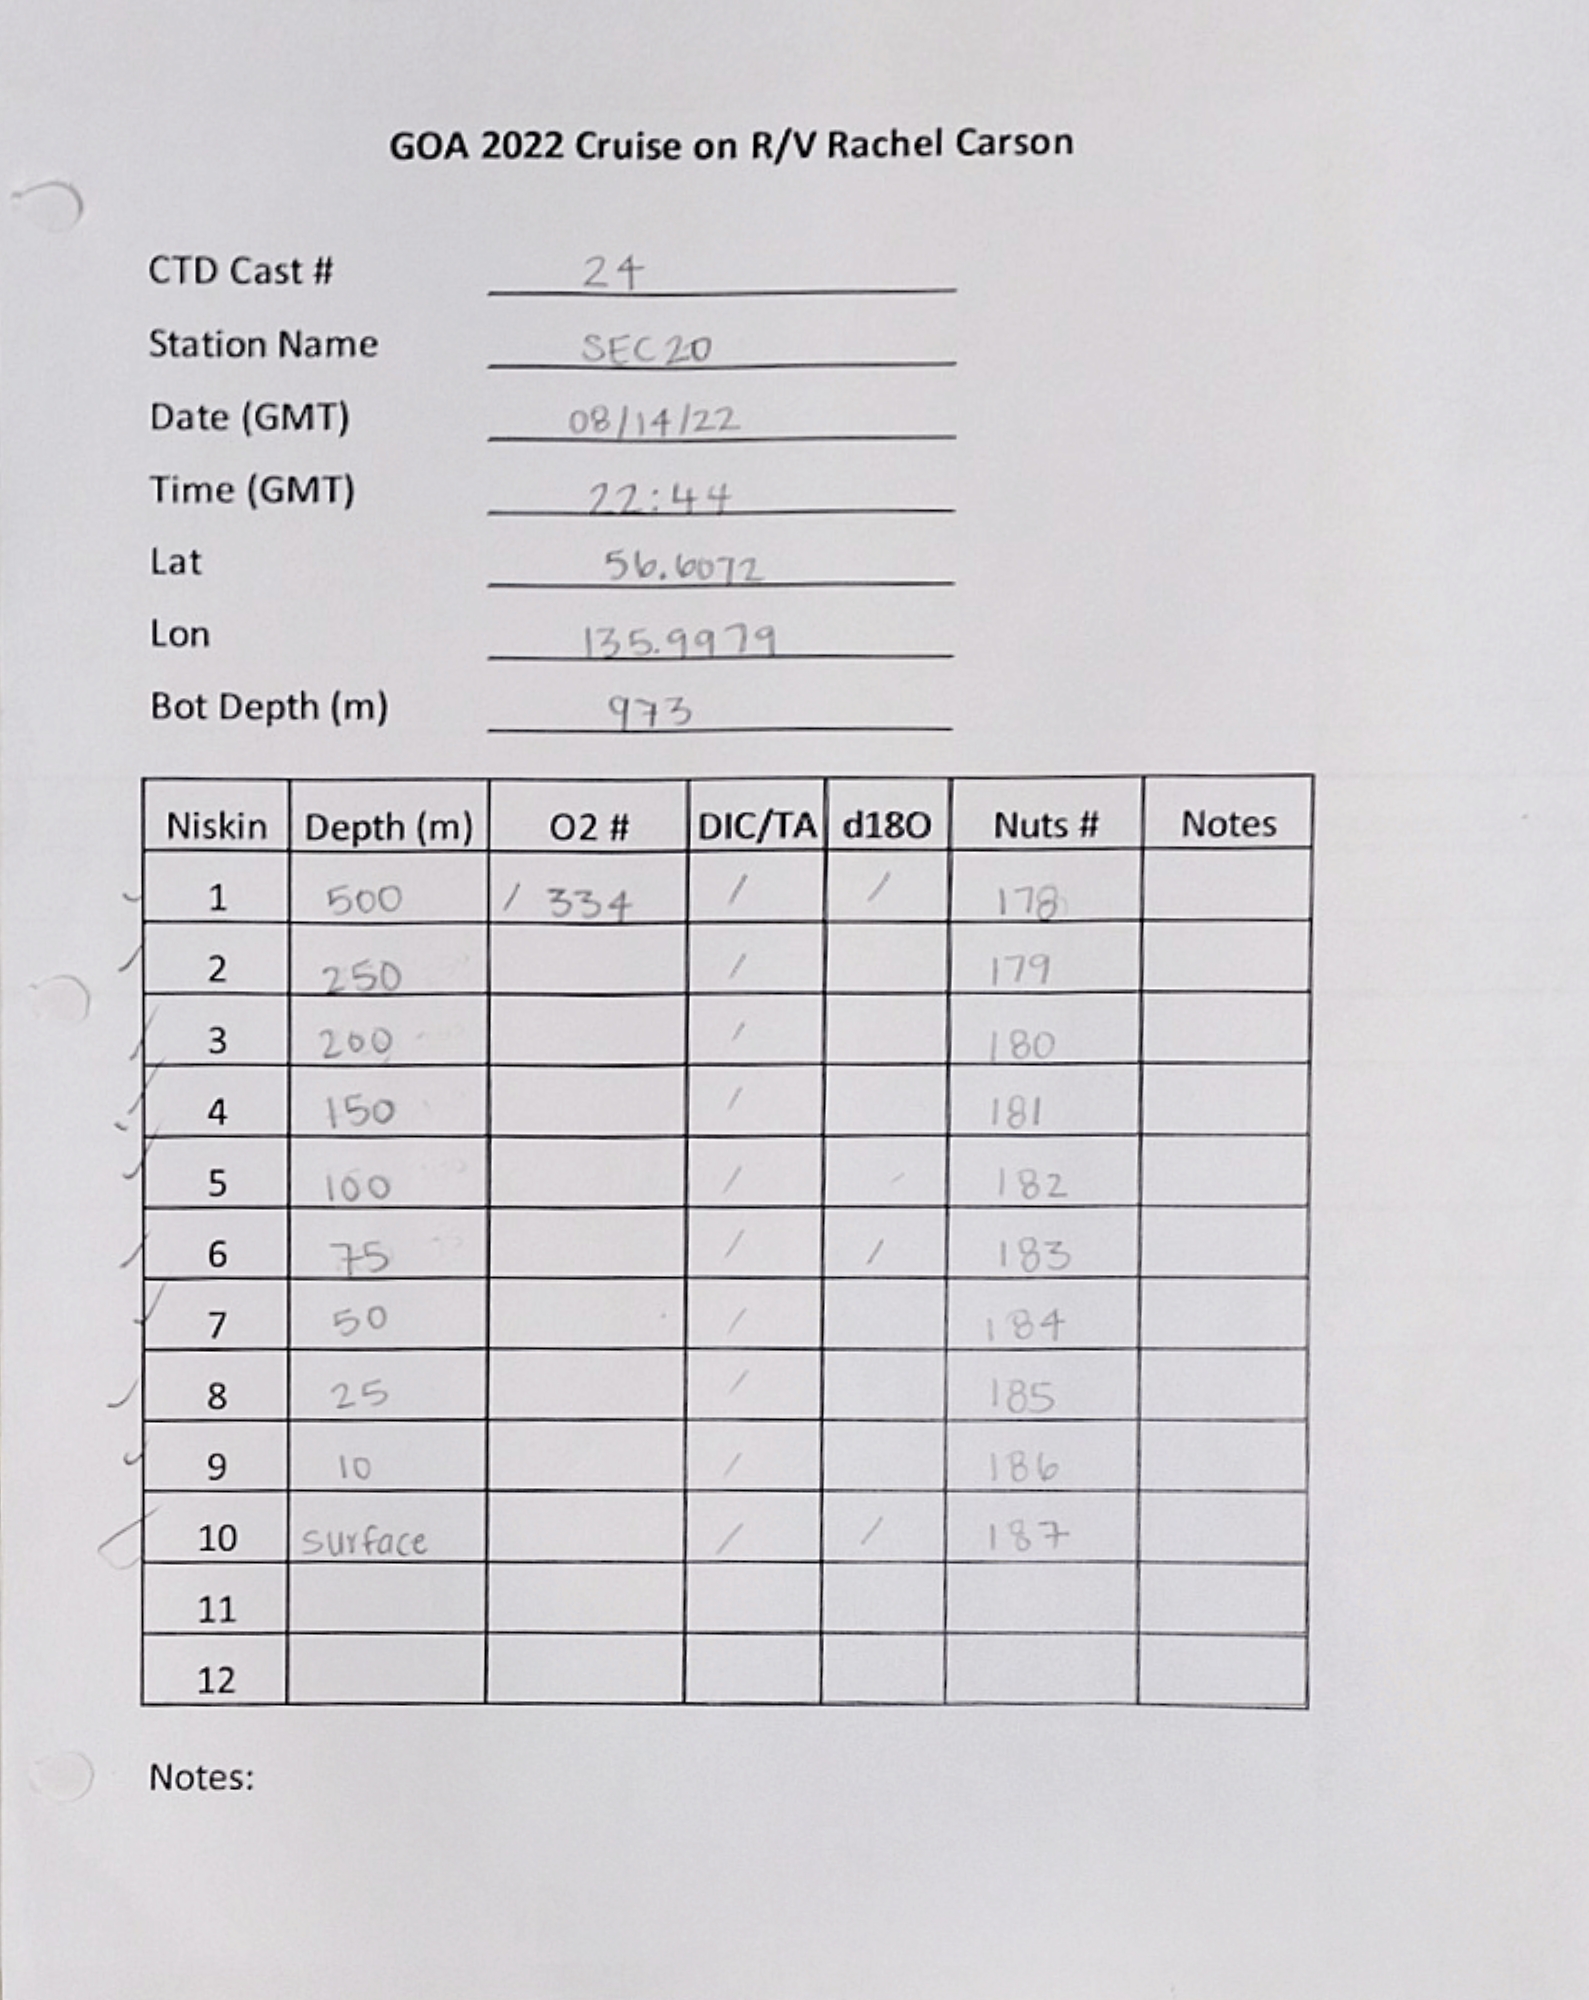 GOA 2022 Cruise on R/V Rachel Carson
CTD Cast # 24
Station Name SEC20
Date (GMT) 08/14/22
Time (GMT) 22:44
Lat 56.6072
Lon 135.9979
Bot Depth (m) 973
Niskin Depth (m) O2 # DIC/TA d18O Nuts # Notes
1 500 / 334 / / 178
2 250 / 179
3 200 / 180
4 150 / 181
5 100 / / 182
6 75 / / 183
7 50 / 184
8 25 / 185
9 10 / 186
10 surface / / 187
11
12
Notes: